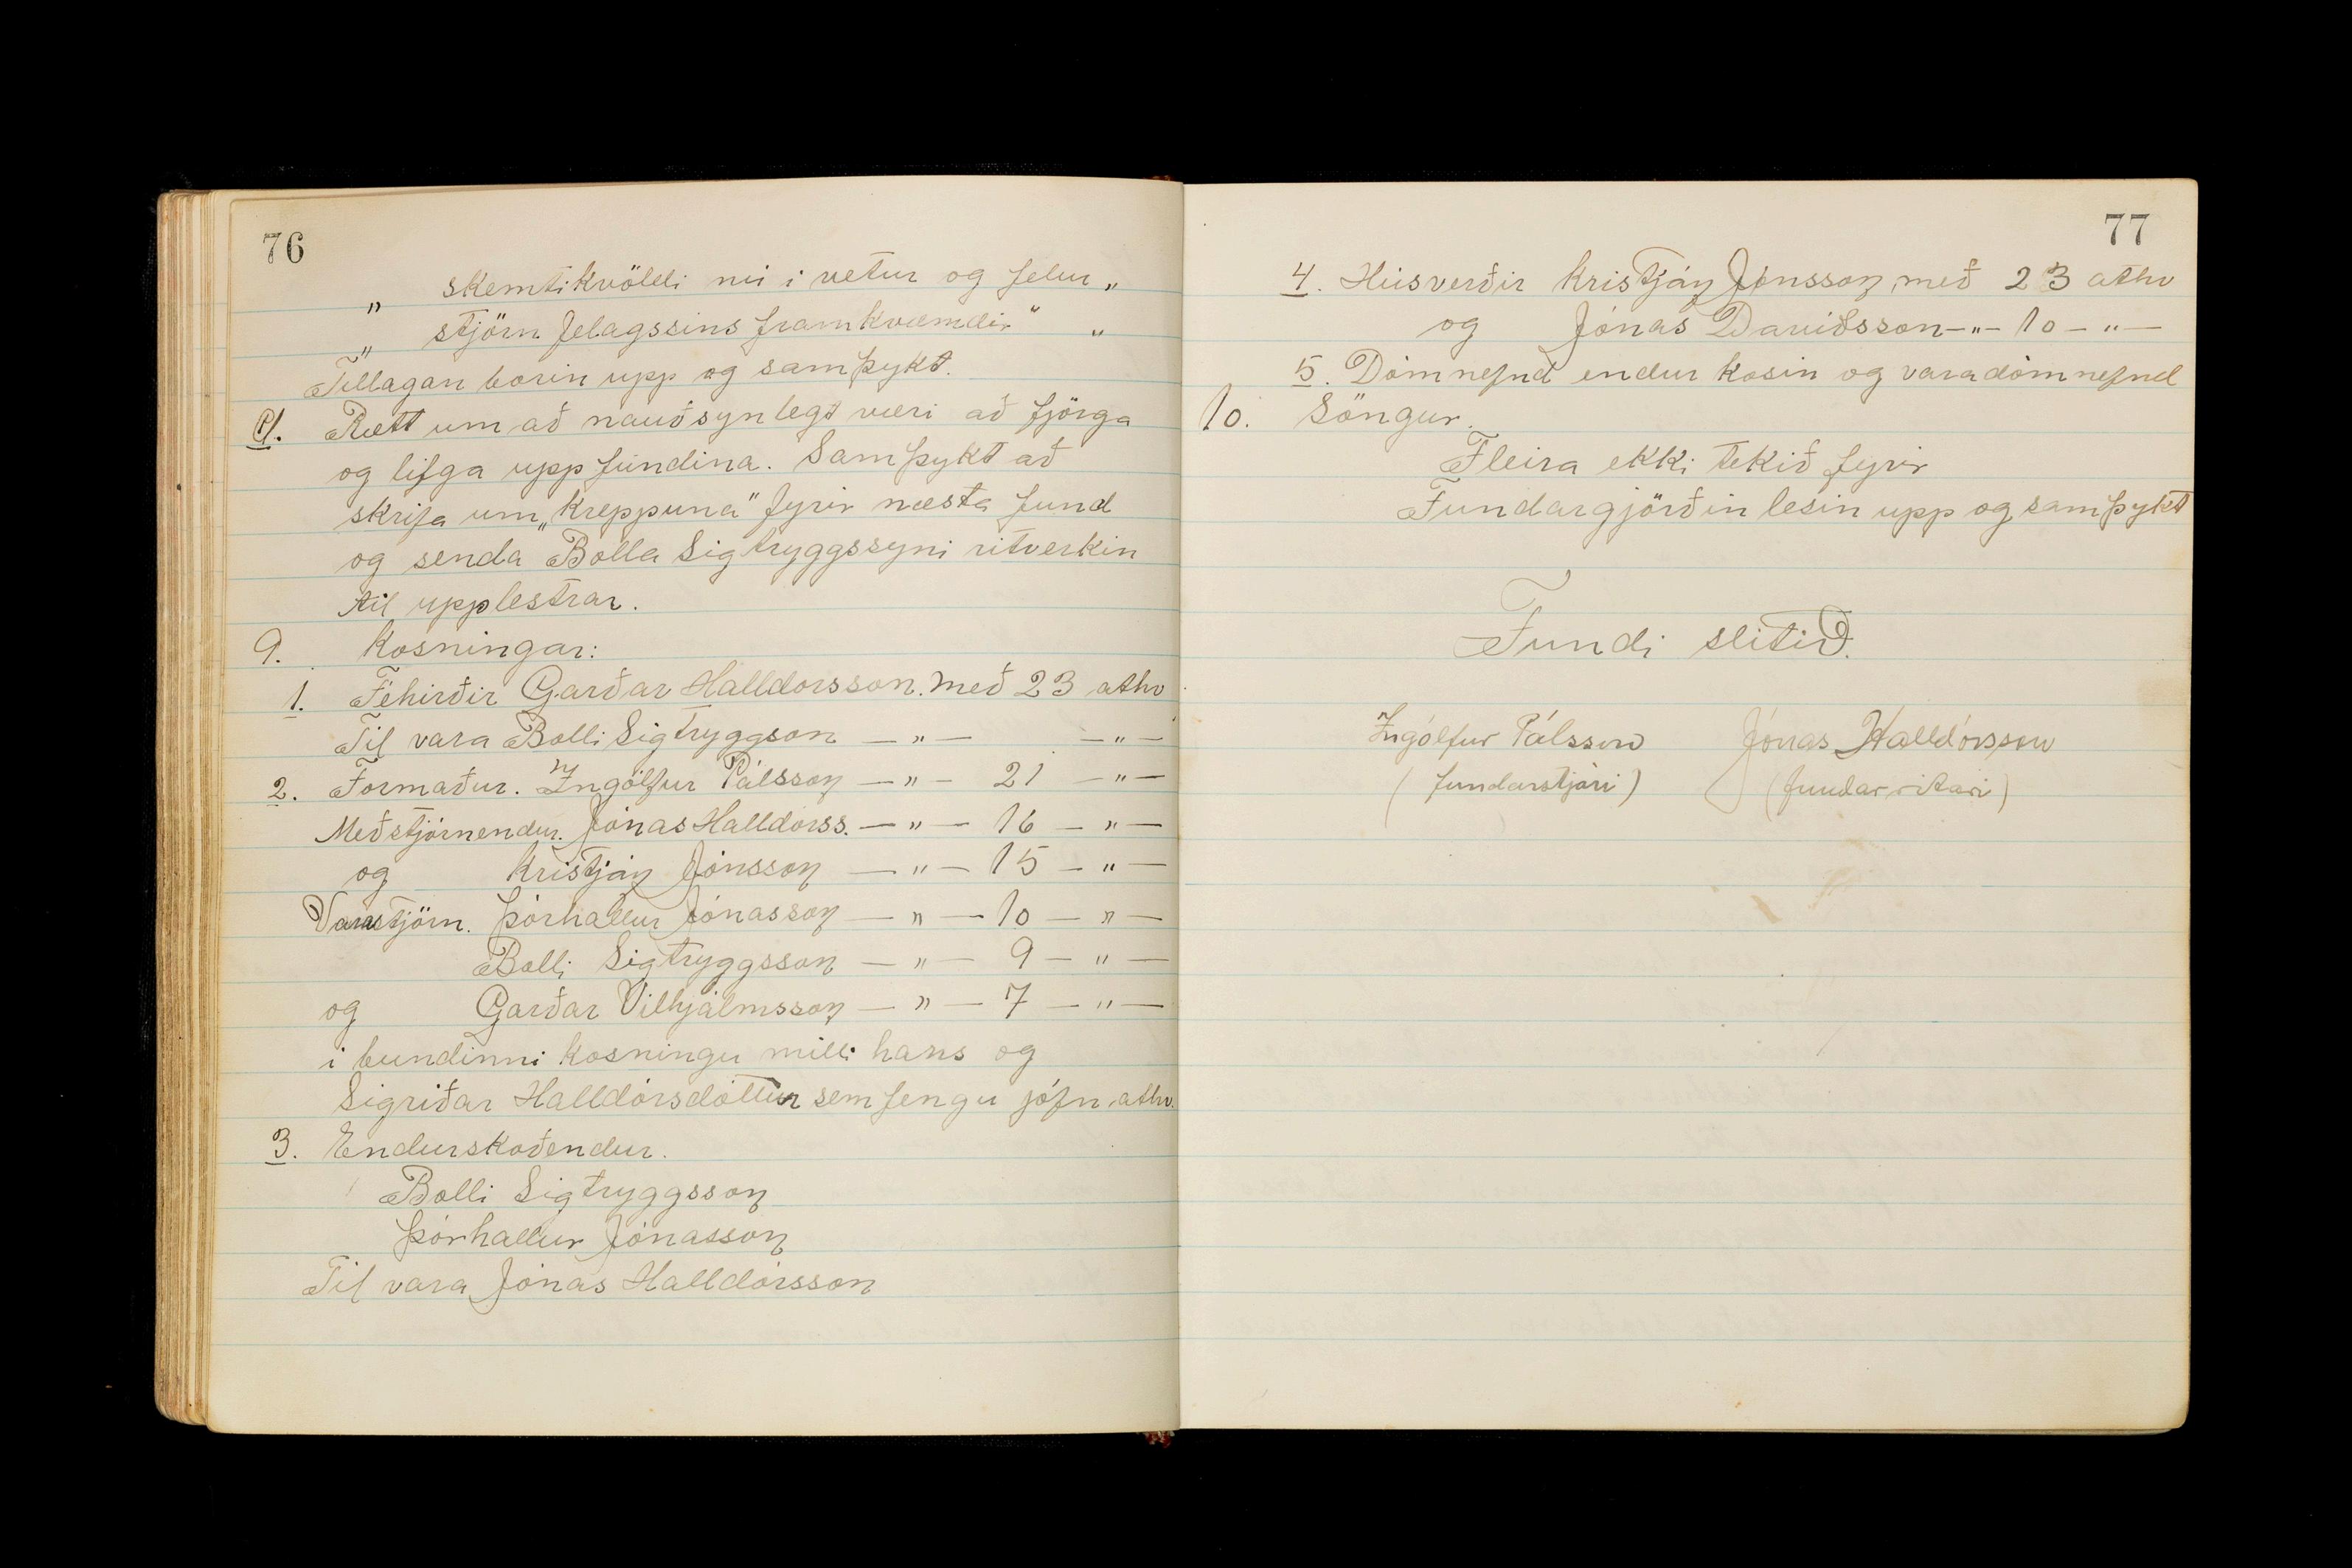 76
„ skemtikvöldi nú i vetur og felur „
„ stjórn felagssins framkvæmdir“ „
Tillagan borin upp og samþykt.
d. Rætt um að nauðsynlegt væri að fjörga
og lifga upp fundina. Samþykt að
skrifa um „kreppuna“ fyrir næsta fund
og senda Bolla Sigtryggssyni ritverkin
til upplestrar.
9. Kosningar:
1. Féhirðir Garðar Halldorsson. með 23 athv
Til vara Bolli Sigtryggson — „ — — „ —
2. Formaður. Ingólfur Pálsson — „ — 21 — „ —
Meðstjórnendur. Jónas Halldórss. — „ — 16 — „ —
og Kristján Jónsson — „ — 15 — „ —
Varastjórn. Þórhallur Jónasson — „ — 10 — „ —
Bolli Sigtryggsson — „ — 9 — „ —
og Garðar Vilhjálmsson — „ — 7 — „ —
i bundinni kosningu milli hans og
Sigriðar Halldórsdóttur sem fengu jöfn athv.
3. Endurskoðendur.
Bolli Sigtryggsson
Þórhallur Jónasson
Til vara Jónas Halldórsson
77
4. Húsverðir Kristján Jónsson, með 23 athv
og Jónas Daviðsson — „ — 10 — „ —
5. Dómnefnd endur kosin og varadómnefnd
10. Söngur.
Fleira ekki tekið fyrir
Fundargjörðin lesin upp og samþykt
Fundi slitið.
Ingólfur Pálsson Jónas Halldórsson
(fundarstjóri) (fundarritari)